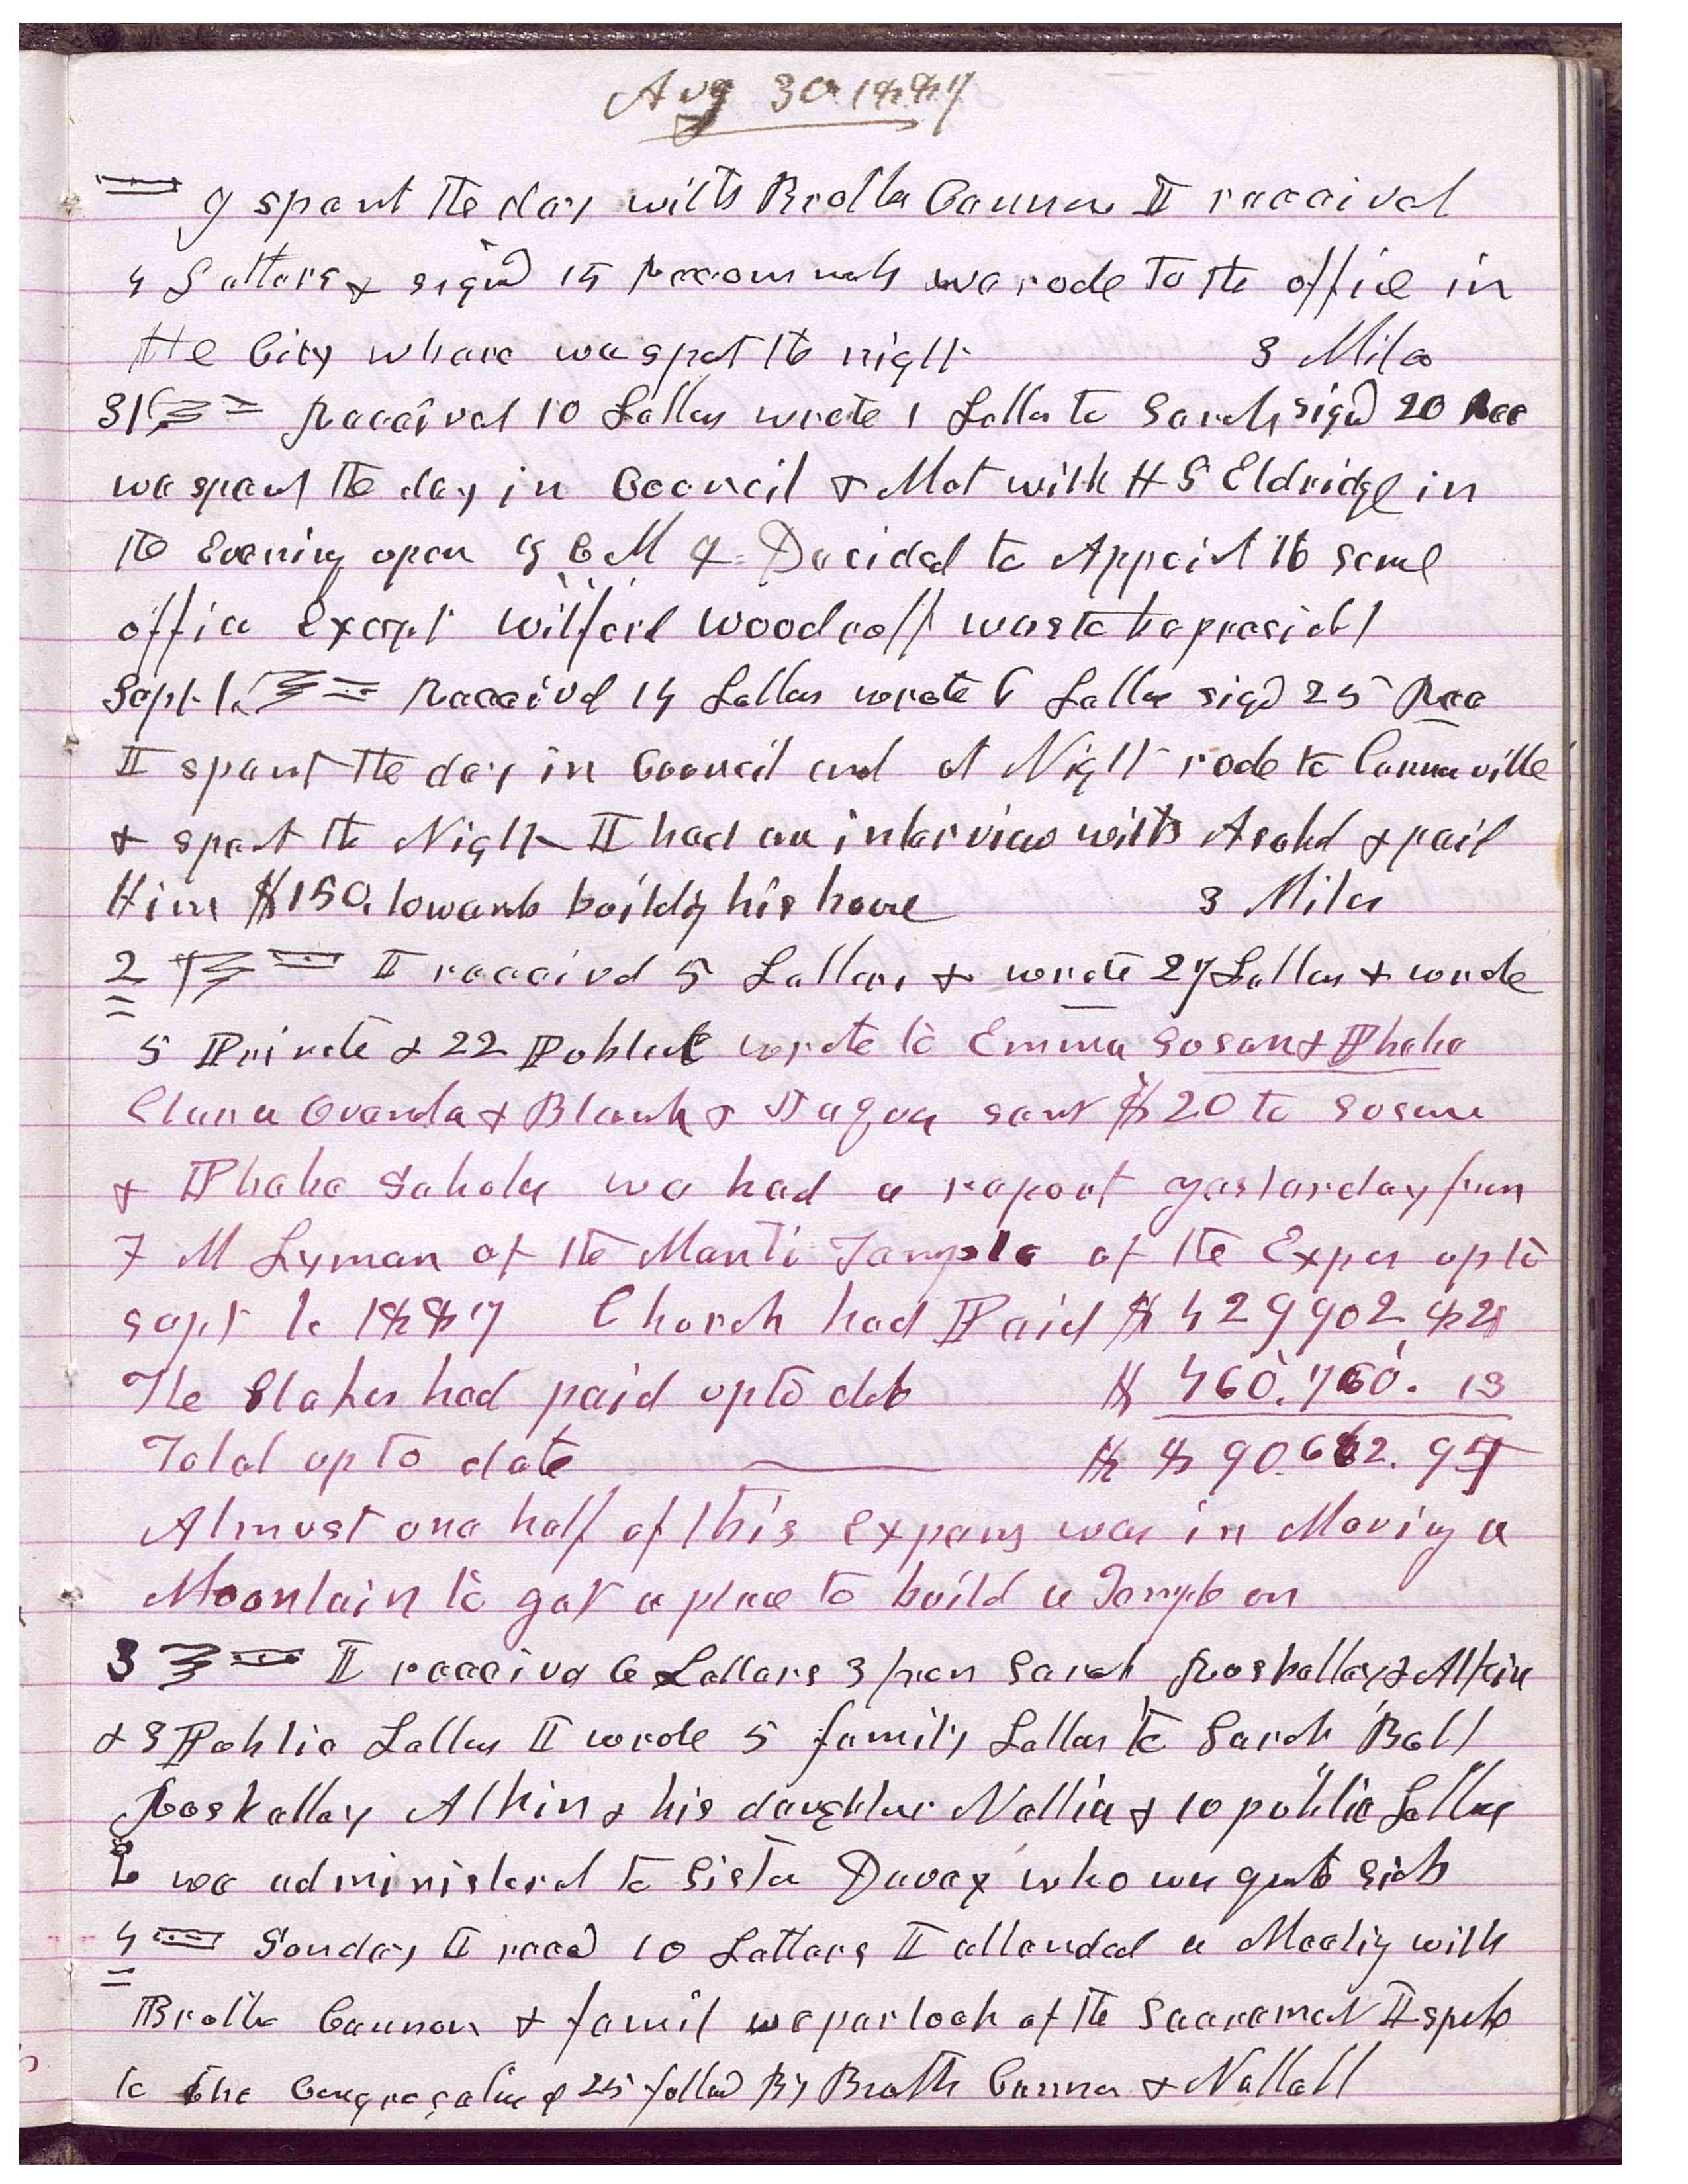 Aug 30 1887
I spent the day with Brother Cannon I received
4 Letters & signd 15 Recommends we rode to the office in
the City where we spent the night 3 Miles
31 Received 10 Letters wrote 1 Letter to Sarah signd 20 Rec
we spent the day in Council & Met with H S Eldridge in
the Evening upon Z C M I Decided to Appoint the same
office Except Wilford Woodruff was to be presidet
Sept 1. Received 14 Letters wrote 6 Letter signd 25 Rec
I spent the day in Council and at Night rode to Cannonville
& spent the Night I had an interview with Asahel & paid
Him $150. towards building his house 3 Miles
2 I receivd 5 Letters & wrote 27 Letters & wrote
5 Private & 22 Publick wrote to Emma Susan & Phebe
Clara Ovando & Blanch & Teague sent $20 to Susan
& Phebe Scholes we had a report yesterday from
F M Lyman of the Manti Temple of the Expens up to
Sept 1. 1887 Church had Paid $429902.82
The Stakes had paid up to date $460.760.13
Total up to date $890.662.95
Almost one half of this expens was in Moving a
Mountain to get a place to build a Temple on
3 I receivd 6 Letters 3 from Sarah Roskelley & Atkin
& 3 Public Letters I wrote 5 family Letters to Sarah Bell
Roskelley Atkin & his daughter Nellie & 10 public Letters
we administerd to Sister Davey who was quite sick
4 Sunday I recd 10 Letters I attended a Meeting with
Brother Cannon & famil we partook of the Sacrament I spoke
to the Congregation of 25 followd By Broth Cannon & Nuttall